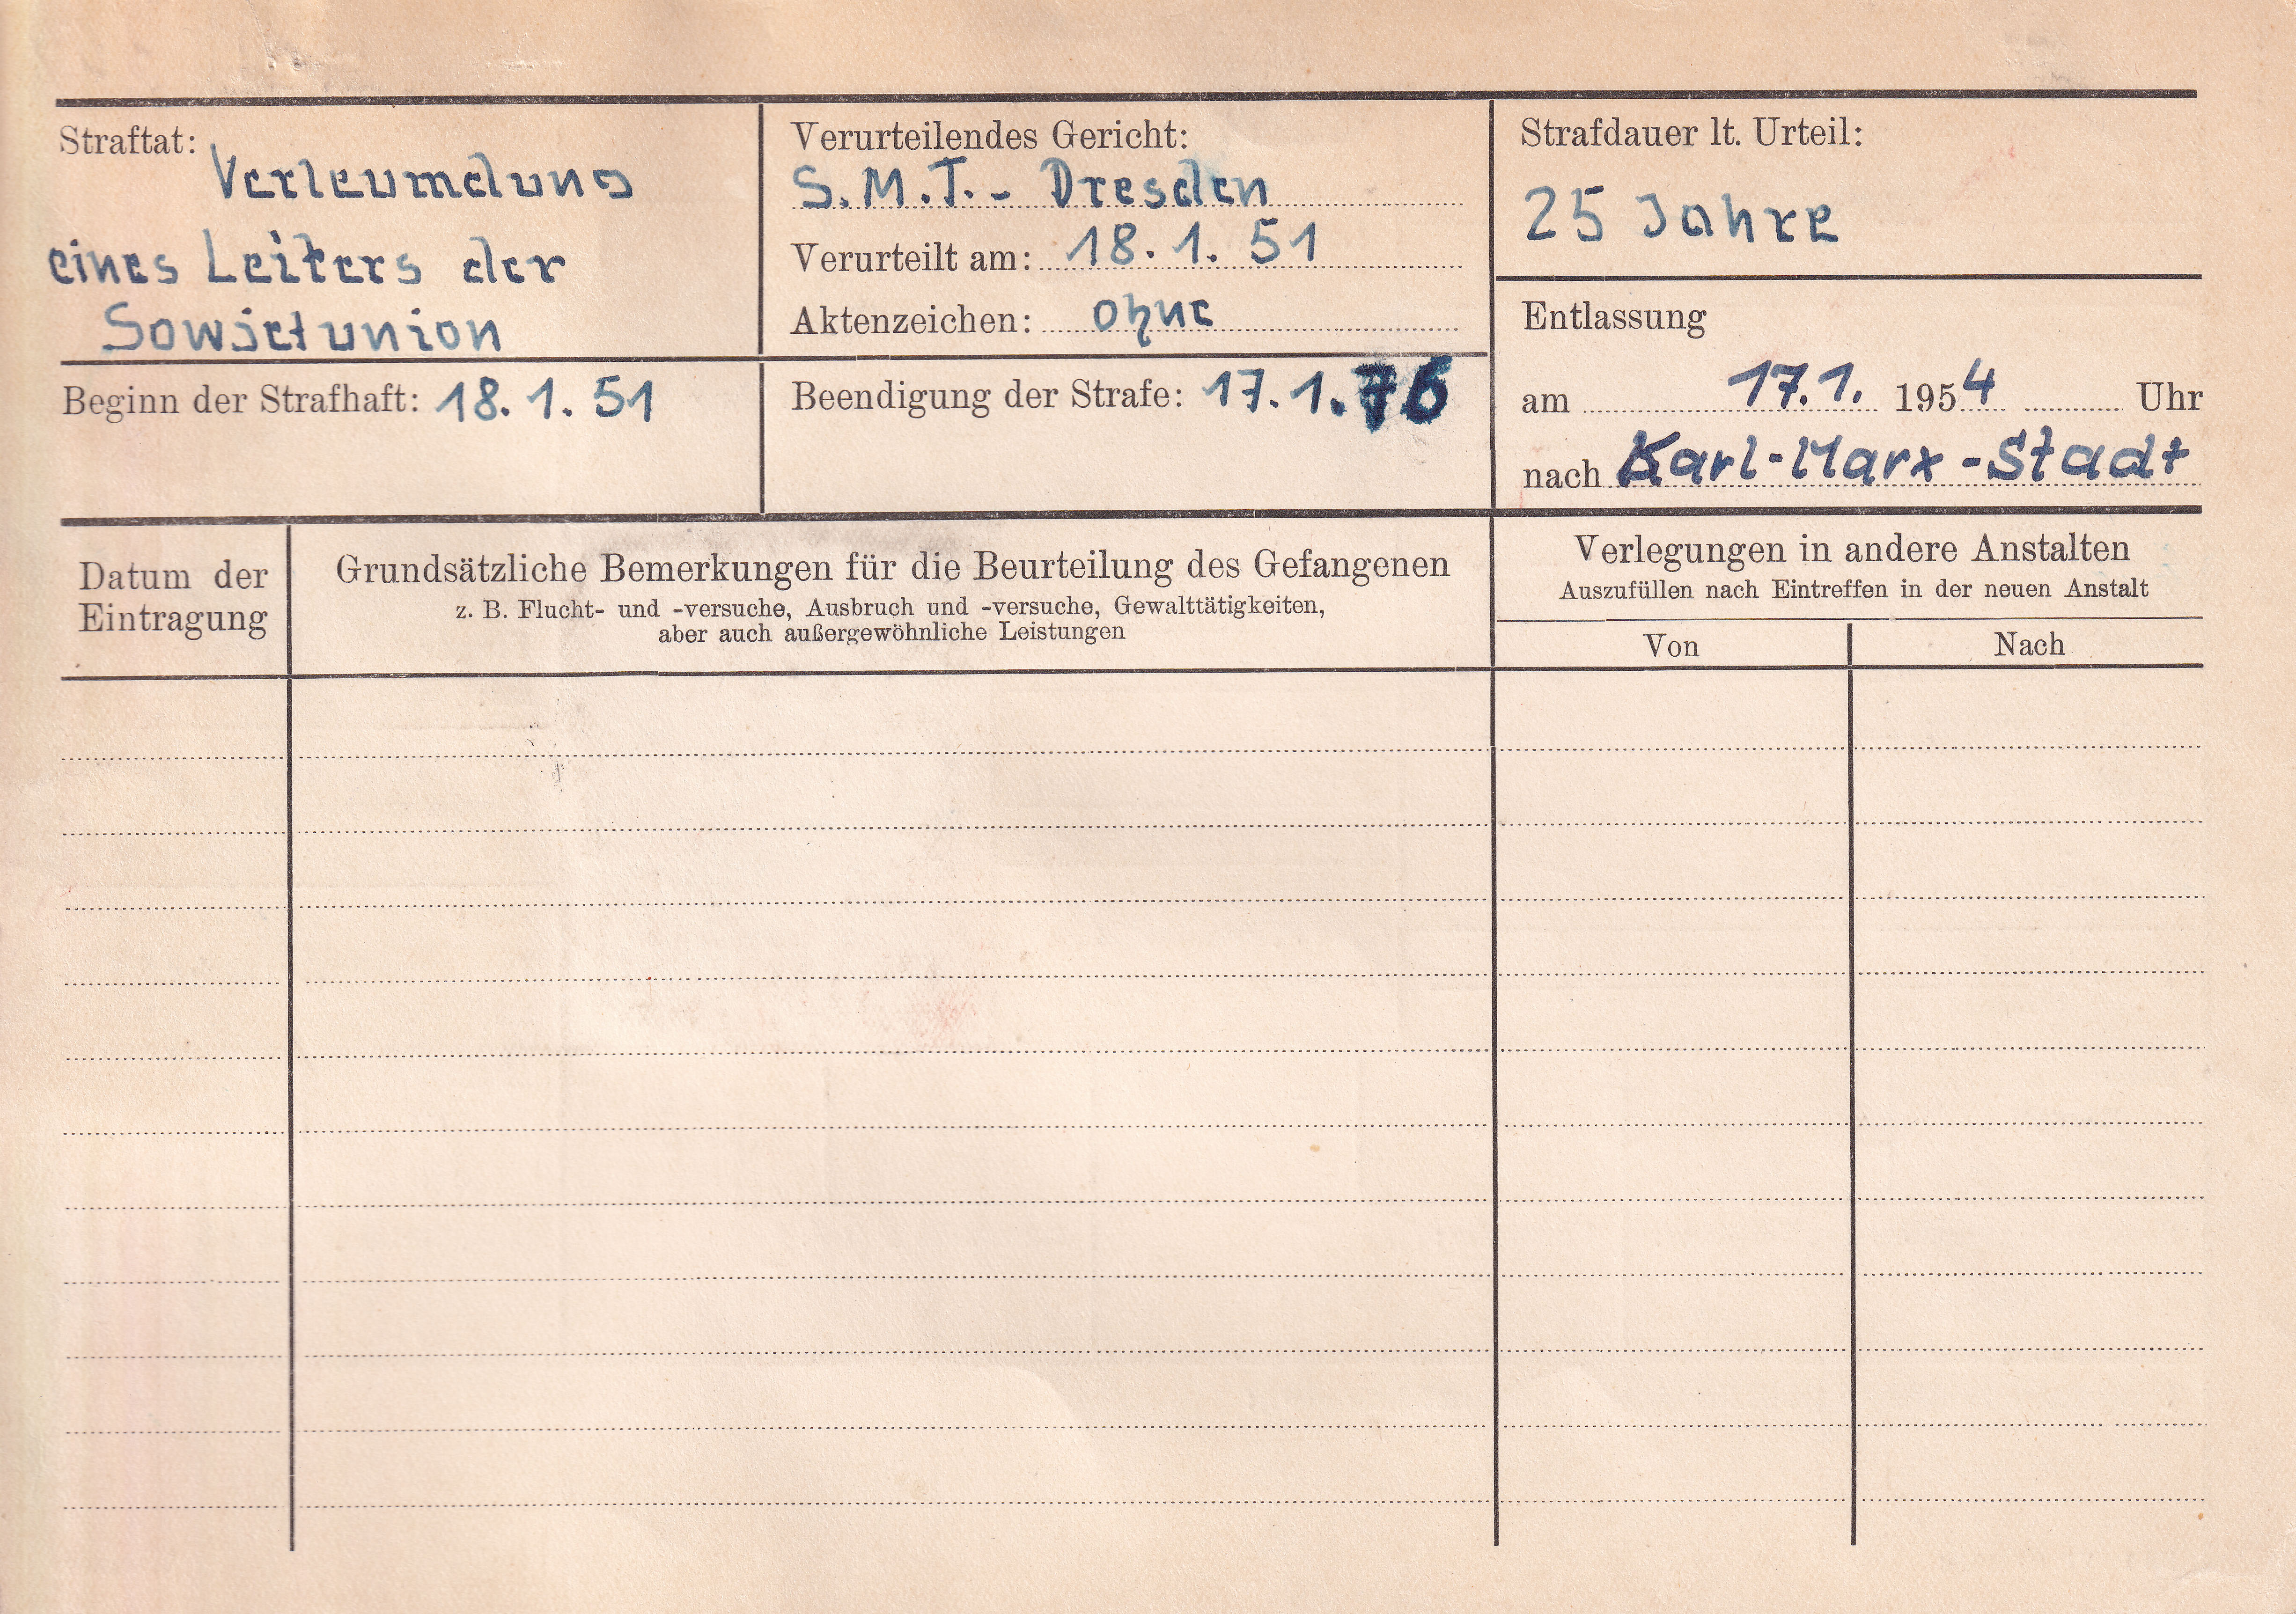 Straftat:
Verleumdung
eines Leiters der
Sowjetunion
Verurteilendes Gericht:
S.M.T.- Dresden
Verurteilt am: 18. 1. 51
Aktenzeichen: ohne
Strafdauer lt. Urteil:
25 Jahre
Beginn der Strafhaft: 18. 1. 51
Beendigung der Strafe: 17. 1. 76
Entlassung
am 17. 1. 1954 Uhr
nach Karl-Marx-Stadt
Datum der
Eintragung
Grundsätzliche Bemerkungen für die Beurteilung des Gefangenen
z. B. Flucht- und -versuche, Ausbruch und -versuche, Gewalttätigkeiten,
aber auch außergewöhnliche Leistungen
Verlegungen in andere Anstalten
Auszufüllen nach Eintreffen in der neuen Anstalt
Von Nach